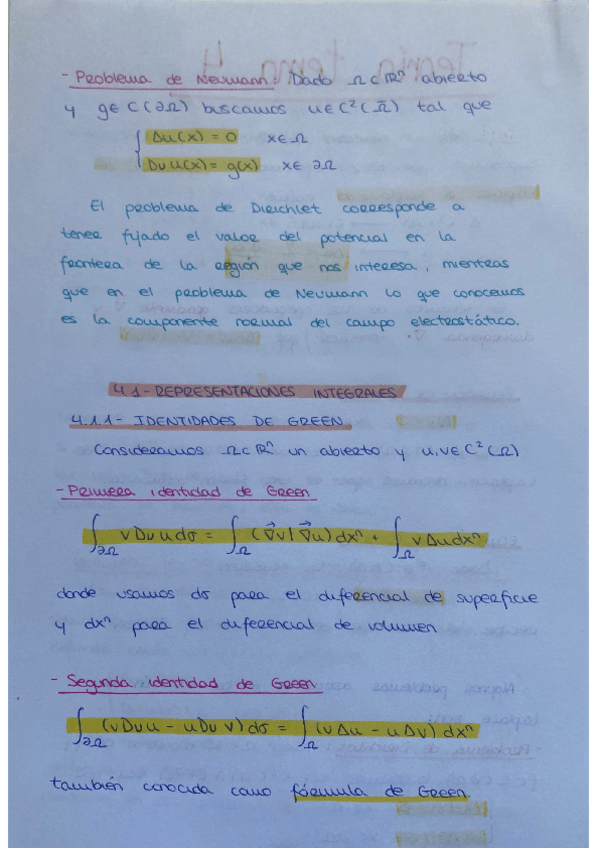 - Problema de Neumann: Dado Ω⊂ℝⁿ abierto
y g∈C(∂Ω) buscamos u∈C²(Ω̄) tal que
{ Δu(x) = 0 x∈Ω
Dνu(x) = g(x) x∈ ∂Ω
El problema de Dirichlet corresponde a
tener fijado el valor del potencial en la
frontera de la región que nos interesa, mientras
que en el problema de Neumann lo que conocemos
es la componente normal del campo electrostático.
4.1 - REPRESENTACIONES INTEGRALES
4.1.1 - IDENTIDADES DE GREEN
Consideramos Ω⊂ℝⁿ un abierto y u,v∈C²(Ω)
- Primera identidad de Green
∫∂Ω v Dν u dσ = ∫Ω (∇⃗v | ∇⃗u) dxⁿ + ∫Ω v Δu dxⁿ
donde usamos dσ para el diferencial de superficie
y dxⁿ para el diferencial de volumen
- Segunda identidad de Green
∫∂Ω (v Dν u - u Dν v) dσ = ∫Ω (v Δu - u Δv) dxⁿ
también conocida como fórmula de Green.